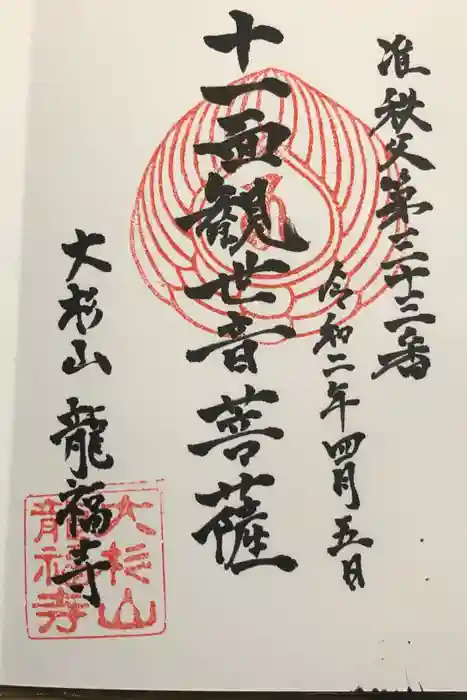 准秩父第三十三番
令和二年四月五日
十一面観世音菩薩
大杉山 龍福寺
大杉山
龍福寺